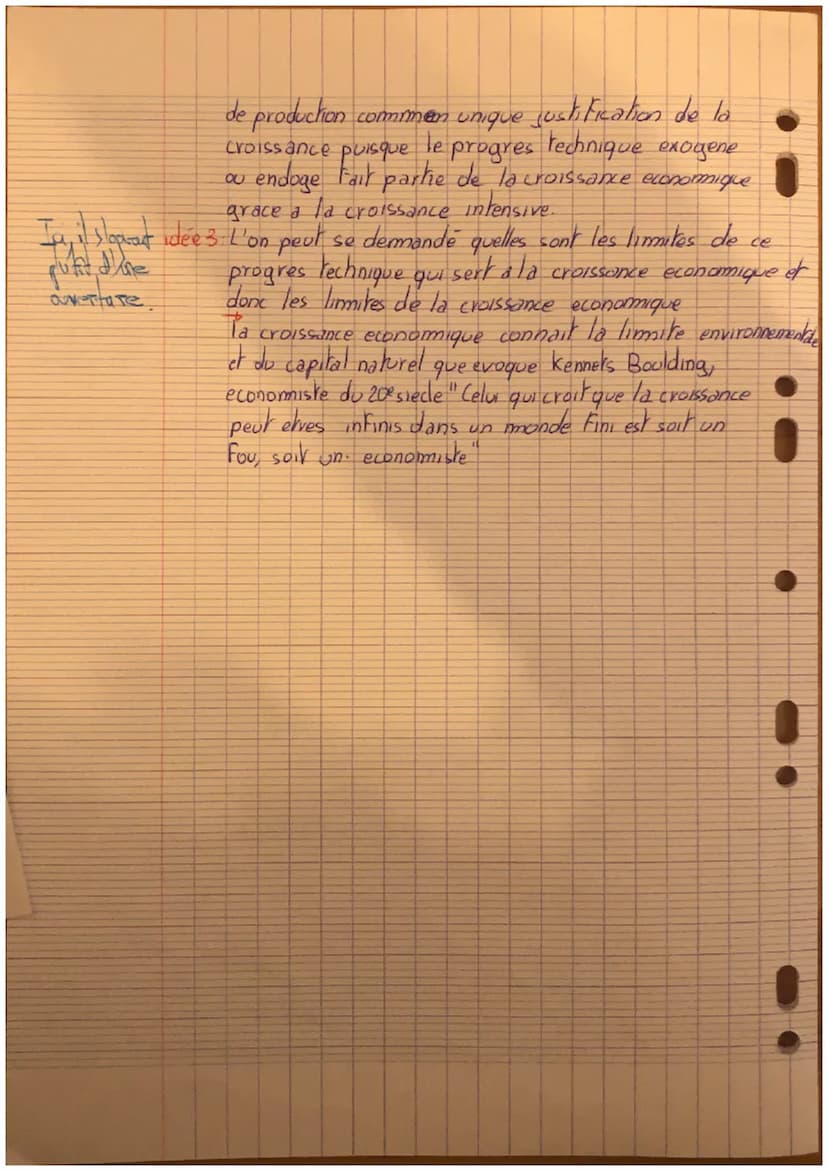 de production commmen unique justification de la
croissance puisque le progres technique exogene
ou endoge fait partie de la croissance economique
grace a la croissance intensive.
Ici, il s'agirait
plutôt d'une
ouverture.
idée 3: L'on peut se demandé quelles sont les limites de ce
progres technique qui sert a la croissance economique et
donc les limites de la croissance economique
la croissance economique connait la limite environnementale
et du capital naturel que evoque Kennets Boulding,
economiste du 20e siecle "Celui qui croit que la croissance
peut etres infinis dans un monde fini est soit un
fou, soit un economiste"